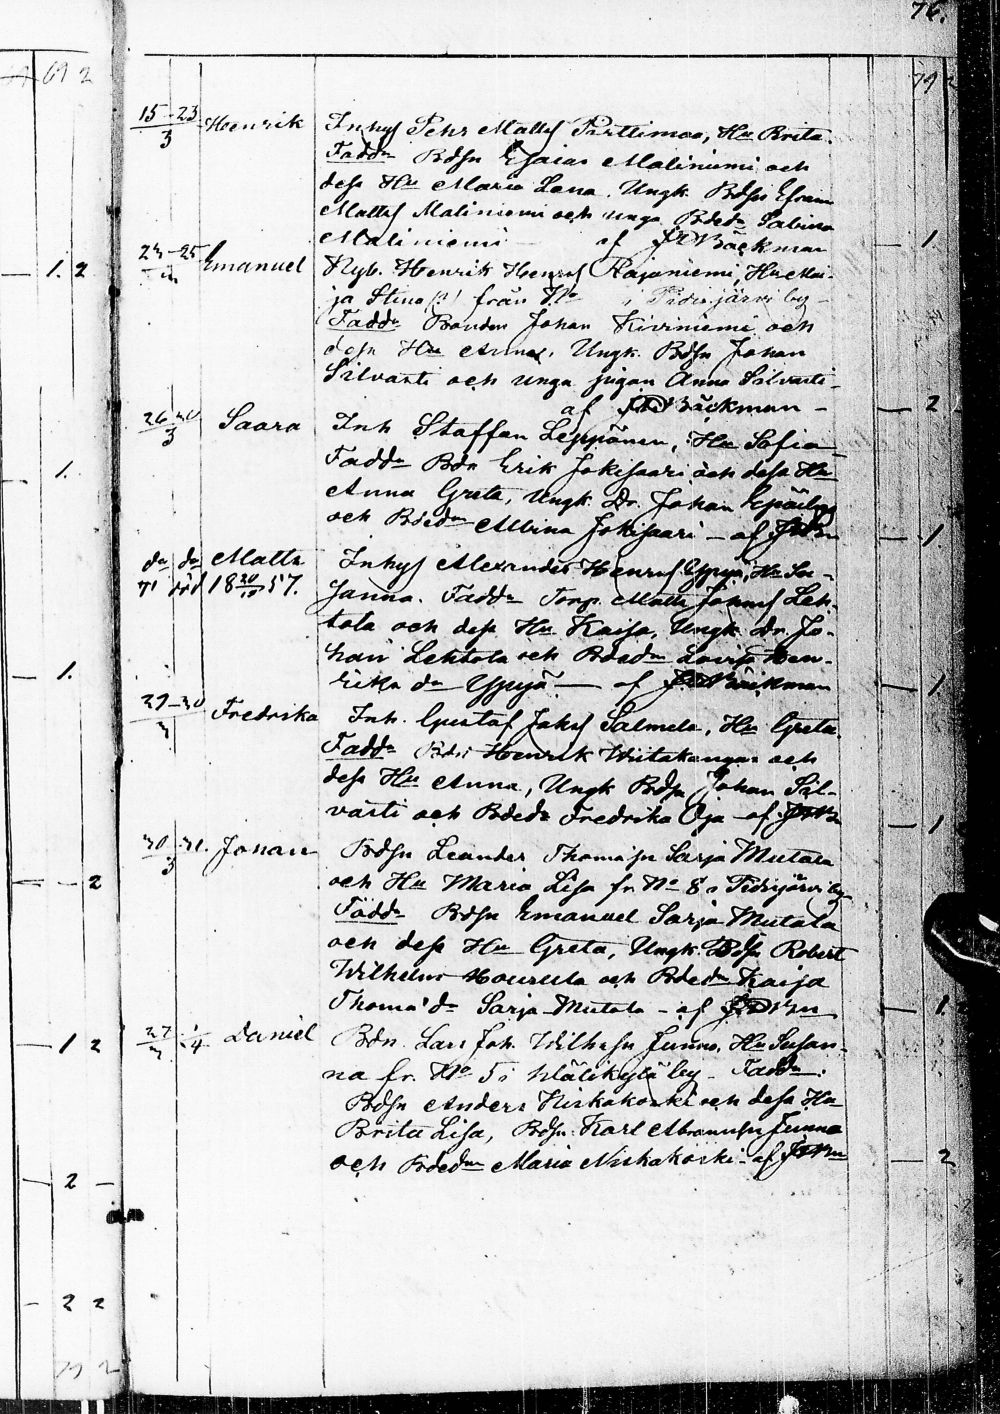 76.
69 2
79 2
15-23 Henrik Inhys Pehr Matts Parttimaa, Hu Brita.
3 Fadd: Bdsn Esaias Maliniemi och
dess Hu Maria Lena. Ungk Bdsn Efraim
Matts Maliniemi och unga Bded: Sabina
Maliniemi — af Bäckman 1
1. 2
23-25 Emanuel Nyb. Henrik Henrs Rajaniemi, Hu Mai-
ja Stina (?) från No i Pidisjärvi by -
Fadd: Bonden Johan Kiviniemi och
dess Hu Anna, Ungk. Bdsn Johan
Silvasti och unga pigan Anna Silvasti -
af Bäckman - 2
26-30 Saara Inh Staffan Leppänen, Hu Sofia -
3 Fadd: Bdn Erik Jokisaari och dess Hu
1.
Anna Greta, Ungk. Dr. Johan
och Bded: Albina Jokisaari - af 1.
do do Matts Inhys Alexander Henrs Yppyä, Hu Su-
18 20/10 57. sanna. Fadd: Torp. Matts Johans Leh-
tola och dess Hu Kaisa, Ungk Dr. Jo-
han Lehtola och Bded: Lovisa Hen-
1.
rika da Yppyä — af Bäckman 1.
29-30 Fredrika Inh. Gustaf Jaks Salmela, Hu Greta.
3 Fadd: Bdn Henrik Wiitakangas och
dess Hu Anna, Ungk Bdsn Johan Sil-
vasti och Bded: Fredrika Oja - af 1
30-31. Johan Bdsn Leander Thomass Sarja Mutala
3 och Hu Maria Lisa fr. No 8 i Pidisjärvi by
2
Fadd: Bdsn Emanuel Sarja Mutala
och dess Hu Greta, Ungk. Bdsn Robert
Wilhelm och Bded: Kaisa
Thomas da Sarja-Mutala - af 1.
1 2
27 1/4 Daniel Bdn. Lars Joh. Wilhsn Junno, Hu Susan-
3 na fr. No 5 i Wälikylä by - Fadd:
Bdsn Anders Niskakoski och dess Hu
Brita Lisa, Bdsn. Karl Abramsn Junno
och Bded: Maria Niskakoski - af 2
2 -
2 2
79 2